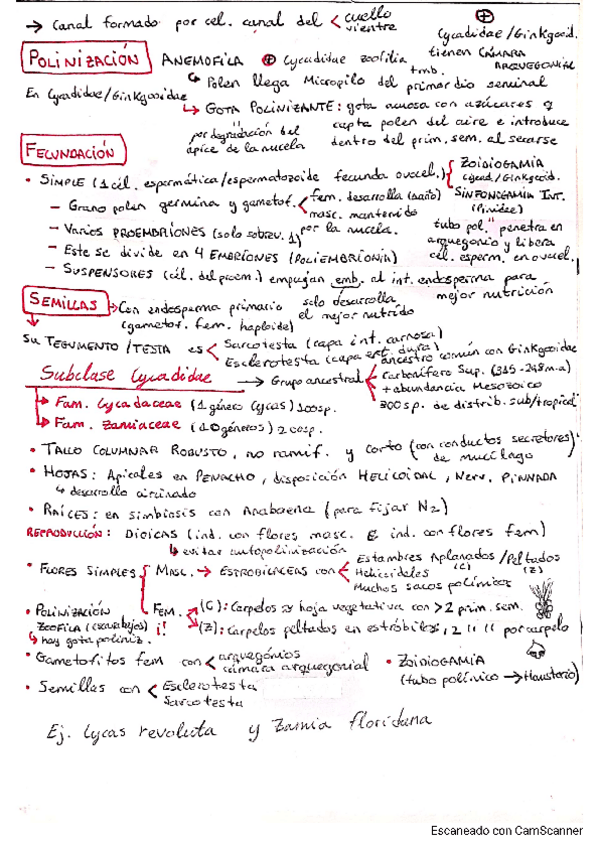 → Canal formado por cel. canal del < cuello
vientre
⊕
Cycadidae/Ginkgooid.
tienen CÁMARA
ARQUEGONIAL
POLINIZACIÓN ANEMOFILA ⊕ Cycadidae zoofilia
tmb.
En Cycadidae/Ginkgooidae
↳ Polen llega Micropilo del primordio seminal
↳ GOTA POLINIZANTE: gota acuosa con azúcares q
capta polen del aire e introduce
dentro del prim. sem. al secarse
por degradación del
ápice de la nucela
FECUNDACIÓN
• SIMPLE (1 cél. espermática/espermatozoide fecunda ovocel.) { ZOIDIOGAMIA
(Cycad/Ginkgooid.
SINFONIGAMIA INT.
(Pinidae)
tubo pol. penetra en
arquegonio y libera
cél. esperm. en ovocel.
- Grano polen germina y gametof. < fem. desarrolla
masc. mantenido
por la nucela.
- Varios PROEMBRIONES (solo sobrev. 1)
- Este se divide en 4 EMBRIONES (POLIEMBRIONIA)
- SUSPENSORES (cél. del proem.) empujan emb. al int. endosperma para
mejor nutrición
SEMILLAS → Con endosperma primario
(gametof. fem. haploide)
solo desarrolla
el mejor nutrido
Su TEGUMENTO/TESTA es < Sarcotesta (capa int. carnosa)
Esclerotesta (capa ext. dura)
Subclase Cycadidae → Grupo ancestral { ancestro común con Ginkgooidae
Carbonífero Sup. (315-248 m.a)
+ abundancia Mesozoico
300 sp. de distrib. sub/tropical
→ Fam. Cycadaceae (1 género Cycas) 100 sp.
→ Fam. Zamiaceae (10 géneros) 200 sp.
• TALLO COLUMNAR ROBUSTO, no ramif. y corto (con conductos secretores)
de mucílago
• HOJAS: Apicales en PENACHO, disposición HELICOIDAL, Nerv. PINNADA
↳ desarrollo circinado
• RAÍCES: en simbiosis con Anabaena (para fijar N2)
REPRODUCCIÓN: DIOICAS (ind. con flores masc. E ind. con flores fem)
↳ evitar autopolinización
• FLORES SIMPLES { MASC. → ESTROBILÁCEAS con { Estambres Aplanados/Peltados
(C) (Z)
Helicoidales
Muchos sacos polínicos
FEM. < (C): Carpelos ≈ hoja vegetativa con >2 prim. sem.
(Z): Carpelos peltados en estróbilos, 2 " " por carpelo
• POLINIZACIÓN
ZOOFILA (escarabajos) ¡!
↳ hay gota poliniz.
• Gametofitos fem con < arquegonios
cámara arquegonial
• ZOIDIOGAMIA
(tubo polínico → Haustorio)
• Semillas con < Esclerotesta
Sarcotesta
Ej. Cycas revoluta y Zamia floridana
Escaneado con CamScanner